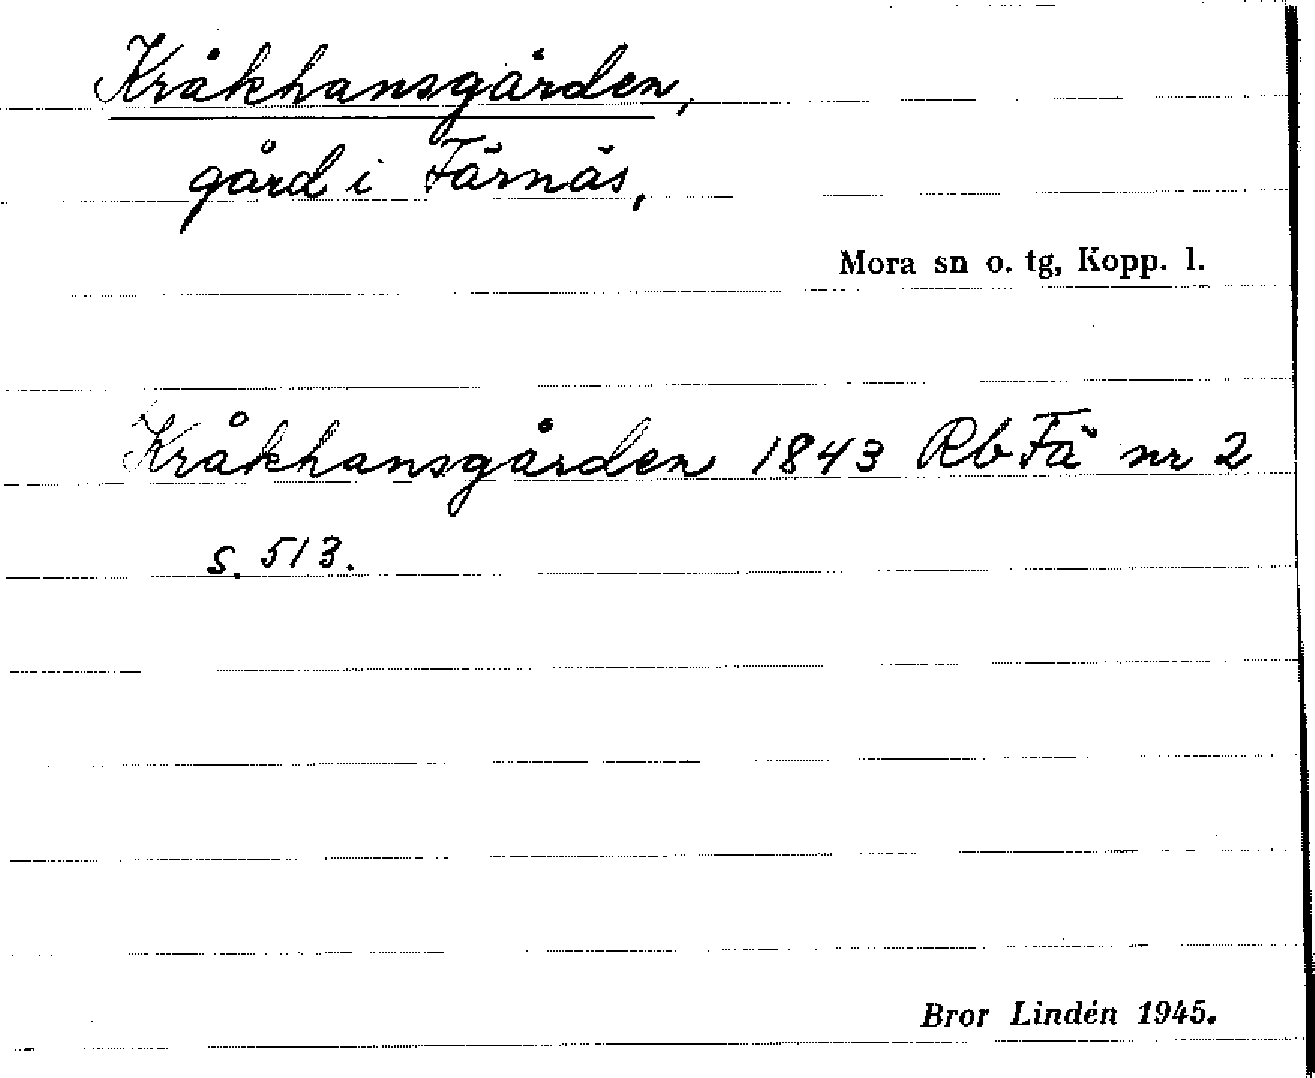 Kråkhansgården,
gård i Färnäs,
Mora sn o. tg, Kopp. l.
Kråkhansgården 1843 Rb Fä nr 2
s. 513.
Bror Lindén 1945.